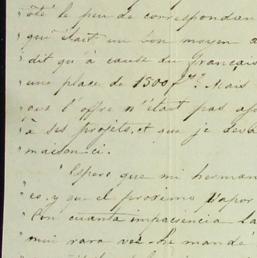 ôté le peu de correspondan
qui était un bon moyen
dit qu'à cause du français
une place de 1500 f. Mais
que l'offre n'était pas
à ses projets, et que je
maison-ci.
Espero que mi herman
es, y que el proximo Vapor
Con cuanta impaciencia la
mui rara vez he mandé